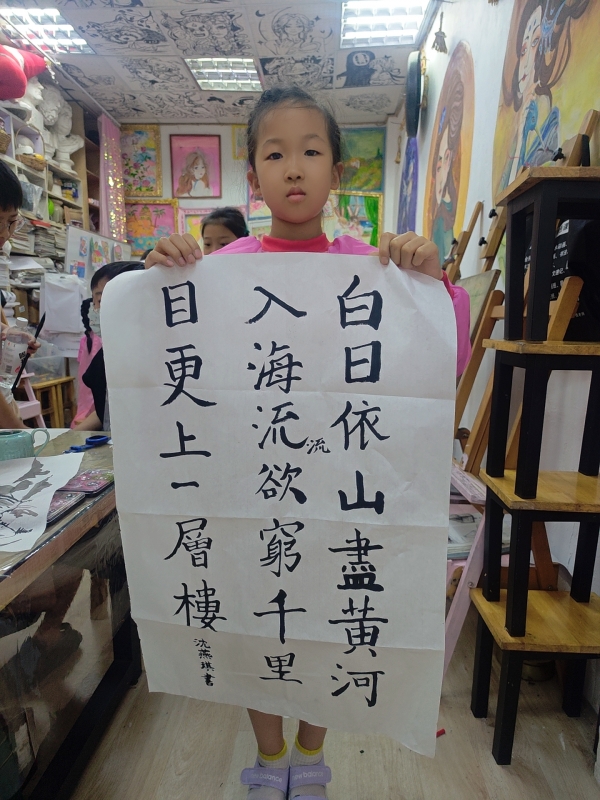 白日依山盡黃河
入海流欲窮千里
流
目更上一層樓
沈燕琪書
new balance
new balance